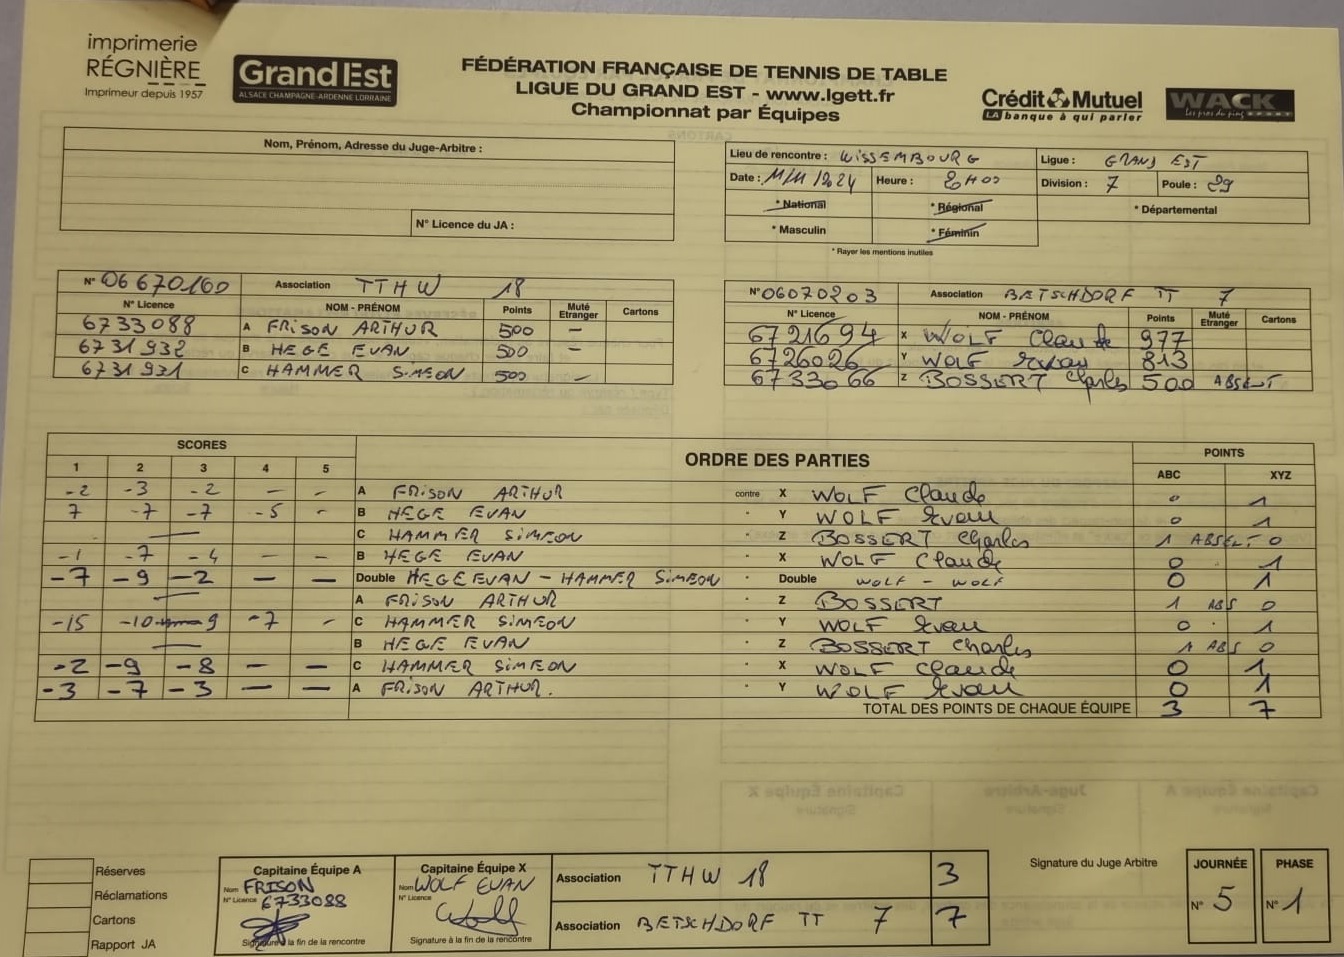 imprimerie
RÉGNIÈRE
Imprimeur depuis 1957
Grand Est
ALSACE CHAMPAGNE-ARDENNE LORRAINE
FÉDÉRATION FRANÇAISE DE TENNIS DE TABLE
LIGUE DU GRAND EST - www.lgett.fr
Championnat par Équipes
Crédit Mutuel
LA banque à qui parler
WACK
SPORT
Nom, Prénom, Adresse du Juge-Arbitre :
N° Licence du JA :
Lieu de rencontre : WISSEMBOURG Ligue : GRAND EST
Date : 11/11/2024 Heure : 20H00 Division : 7 Poule : 29
* National * Régional * Départemental
* Masculin * Féminin
* Rayer les mentions inutiles
N° 06670160 Association TTHW 18
N° Licence NOM - PRÉNOM Points Muté Etranger Cartons
6733088 A FRISON ARTHUR 500 —
6731932 B HEGE EVAN 500 —
6731931 C HAMMER SIMEON 500 —
N° 06070203 Association BETSCHDORF TT 7
N° Licence NOM - PRÉNOM Points Muté Etranger Cartons
6721694 X WOLF Claude 977
6726026 Y WOLF Evan 813
6733066 Z BOSSERT Charles 500 ABSENT
SCORES ORDRE DES PARTIES POINTS
1 2 3 4 5 ABC XYZ
-2 -3 -2 — - A FRISON ARTHUR contre X WOLF Claude 0 1
7 -7 -7 -5 - B HEGE EVAN " Y WOLF Evan 0 1
— C HAMMER SIMEON " Z BOSSERT Charles 1 ABSENT 0
-1 -7 -4 — — B HEGE EVAN " X WOLF Claude 0 1
-7 -9 -2 — — Double HEGE EVAN - HAMMER SIMEON " Double WOLF - WOLF 0 1
— A FRISON ARTHUR " Z BOSSERT 1 ABS 0
-15 -10 9 -7 - C HAMMER SIMEON " Y WOLF Evan 0 1
— B HEGE EVAN " Z BOSSERT Charles 1 ABS 0
-2 -9 -8 — — C HAMMER SIMEON " X WOLF Claude 0 1
-3 -7 -3 — — A FRISON ARTHUR. " Y WOLF Evan 0 1
TOTAL DES POINTS DE CHAQUE ÉQUIPE 3 7
Réserves
Réclamations
Cartons
Rapport JA
Capitaine Équipe A
Nom FRISON
N° Licence 6733088
Signature à la fin de la rencontre
Capitaine Équipe X
Nom WOLF EVAN
N° Licence
Signature à la fin de la rencontre
Association TTHW 18 3
Association BETSCHDORF TT 7 7
Signature du Juge Arbitre
JOURNÉE
N° 5
PHASE
N° 1